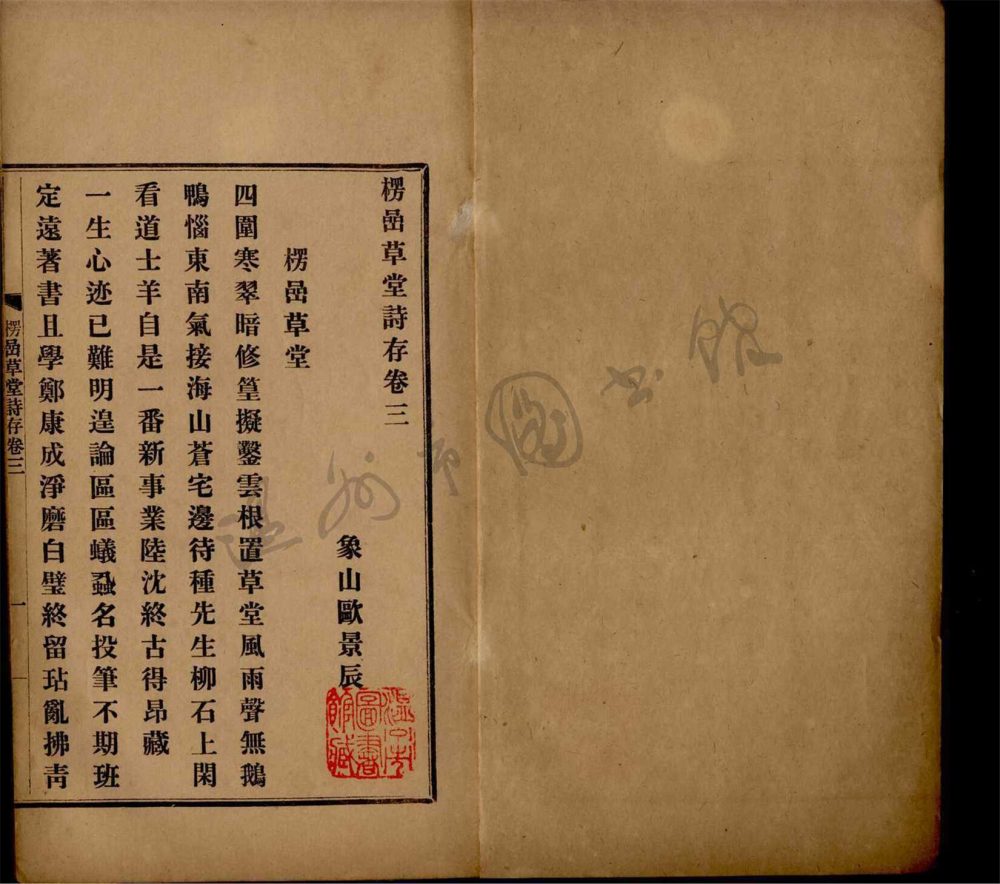 楞嵒草堂詩存卷三
象山歐景辰
楞嵒草堂
四圍寒翠暗修篁擬鑿雲根置草堂風雨聲無鵝
鴨惱東南氣接海山蒼宅邊待種先生柳石上閑
看道士羊自是一番新事業陸沈終古得昂藏
一生心迹已難明遑論區區蟻蝨名投筆不期班
定遠著書且學鄭康成淨磨白璧終留玷亂拂靑
楞嵒草堂詩存卷三
一
溫州市圖書館
溫州市圖書館藏